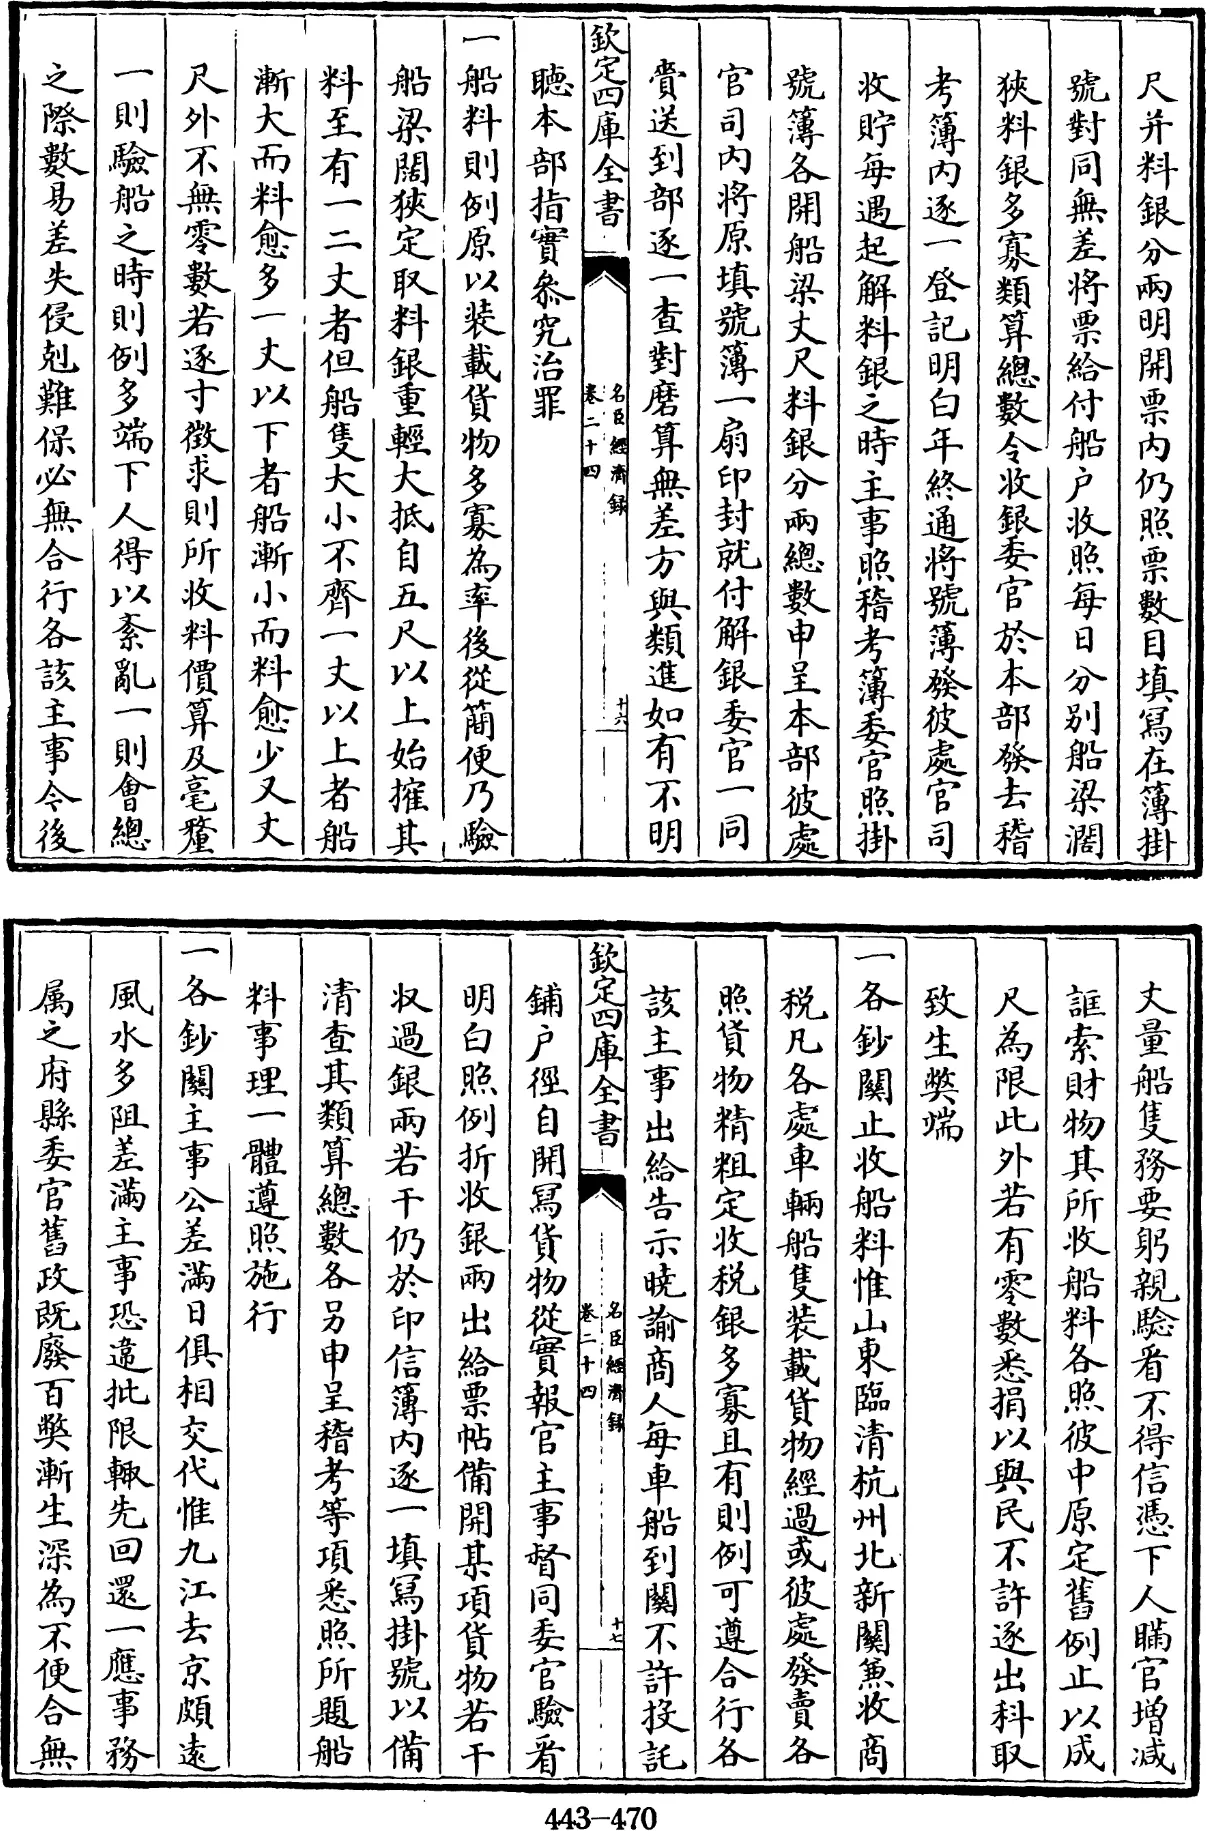 尺并料銀分兩明開票内仍照票數目填寫在簿掛
號對同無差將票給付船户收照每日分别船梁濶
狹料銀多寡類算總數令收銀委官於本部發去稽
考簿内逐一登記明白年終通將號簿發彼處官司
收貯每遇起解料銀之時主事照稽考簿委官照掛
號簿各開船梁丈尺料銀分兩總數申呈本部彼處
官司内將原填號簿一扇印封就付解銀委官一同
賫送到部逐一查對磨算無差方與類進如有不明
欽定四庫全書
名臣經濟録
卷二十四
十六
聽本部指實叅究治罪
一船料則例原以装載貨物多寡為率後從簡便乃驗
船梁闊狹定取料銀重輕大抵自五尺以上始㩁其
料至有一二丈者但船隻大小不齊一丈以上者船
漸大而料愈多一丈以下者船漸小而料愈少又丈
尺外不無零數若逐寸徵求則所收料價算及毫釐
一則驗船之時則例多端下人得以紊亂一則會總
之際數易差失侵剋難保必無合行各該主事今後
丈量船隻務要躬親驗看不得信憑下人瞞官增減
誆索財物其所收船料各照彼中原定舊例止以成
尺為限此外若有零數悉捐以與民不許逐出科取
致生獘端
一各鈔關止收船料惟山東臨清杭州北新關兼收商
税凡各處車輛船隻装載貨物經過或彼處發賣各
照貨物精粗定收税銀多寡且有則例可遵合行各
該主事出給告示曉諭商人每車船到關不許投託
欽定四庫全書
名臣經濟録
卷二十四
十七
鋪户徑自開寫貨物從實報官主事督同委官驗看
明白照例折收銀兩出給票帖備開某項貨物若干
収過銀兩若干仍於印信簿内逐一填寫掛號以備
清查其類算總數各另申呈稽考等項悉照所題船
料事理一體遵照施行
一各鈔關主事公差滿日俱相交代惟九江去京頗遠
風水多阻差滿主事恐違批限輙先回還一應事務
属之府縣委官舊政既廢百獘漸生深為不便合無
443-470